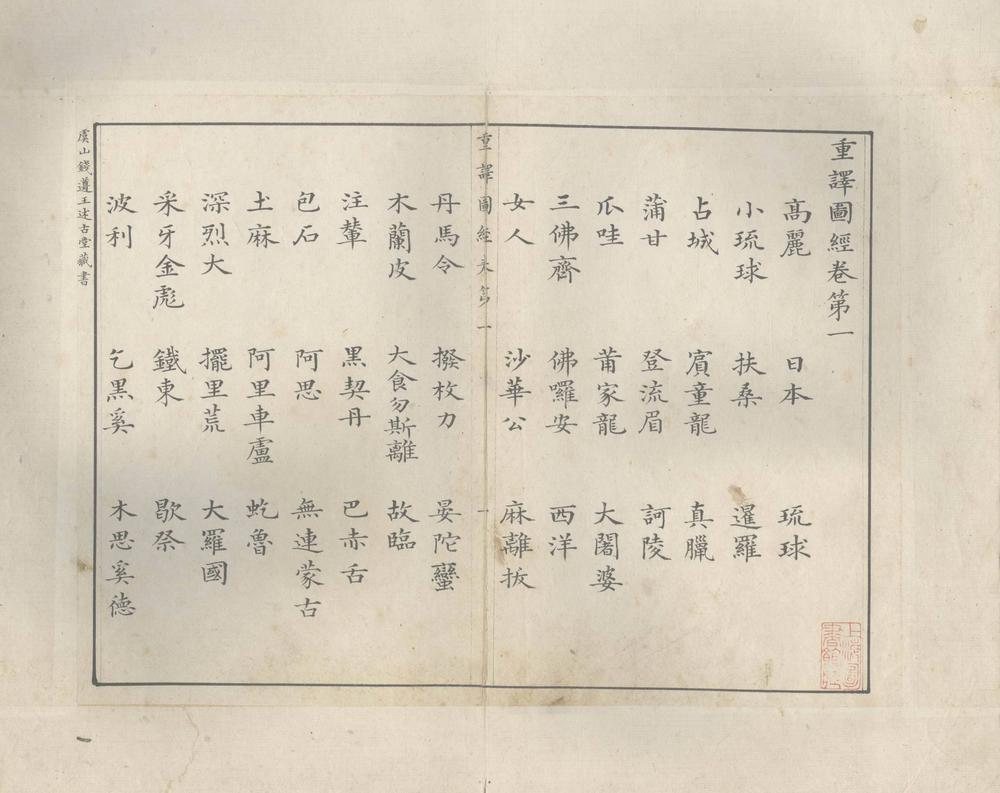 重譯圖經卷第一
高麗 日本 琉球
小琉球 扶桑 暹羅
占城 賔童龍 真臘
蒲甘 登流眉 訶陵
爪哇 莆家龍 大闍婆
三佛齊 佛囉安 西洋
女人 沙華公 麻離拔
重譯圖經 第一
一
丹馬令 撥枚力 晏陀蠻
木蘭皮 大食勿斯離 故臨
注輦 黑契丹 巴赤舌
包石 阿思 無連蒙古
土麻 阿里車盧 虼魯
深烈大 擺里荒 大羅國
采牙金彪 鐵東 歇祭
波利 乞黒奚 木思奚德
虞山錢遵王述古堂藏書
上海圖書館藏